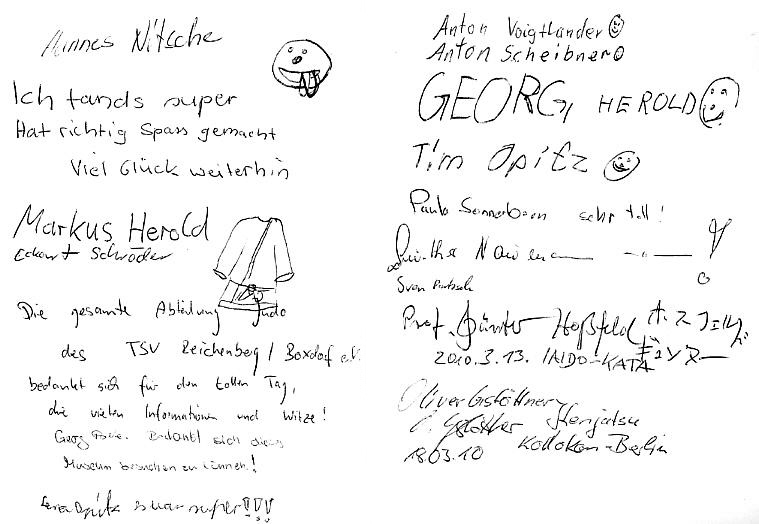 Hannes Nitsche
Ich fands super
Hat richtig Spass gemacht
Viel Glück weiterhin
Markus Herold
Eckart Schröder
Die gesamte Abteilung Judo
des TSV Reichenberg / Boxdorf e.V.
bedankt sich für den tollen Tag,
die vielen Informationen und Witze!
Georg Bedankt sich dieses
Museum besuchen zu können!
Opitz es war super!!!
Anton Voigtländer
Anton Scheibner
GEORG HEROLD
Tim Opitz
Paula Sonnerborn sehr toll!
Sven
Prof. Günter Hoßfeld
2010.3.13. IAIDO-KATA
Oliver Gstöttner
Kenjutsu
18.03.10 Kodokan-Berlin